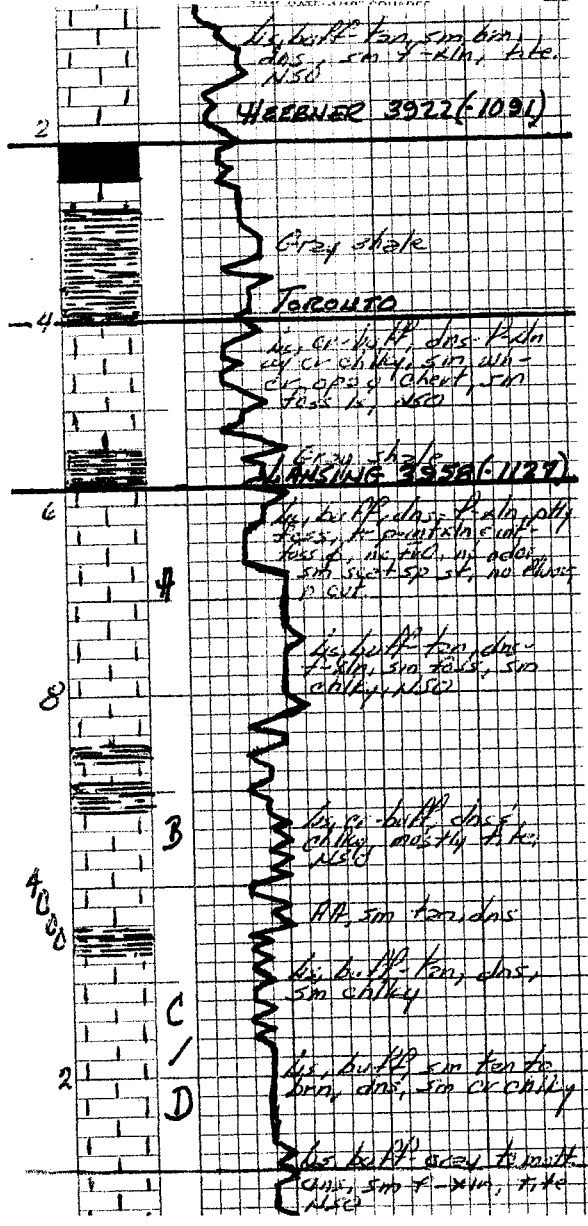 Ls, buff-tan, sm brn,
dns, sm f-xln, tite,
NSO
HEEBNER 3922(-1091)
2
Gray shale
TORONTO
4
Ls, cr-buff, dns-f-xln
w/ cr chlky, sm
cr opaq chert, sm
foss ls, NSO
Gray shale
LANSING 3958(-1127)
6
Ls, buff, dns-f-xln, ptly
foss,
foss no odor,
sm sp st, no
cut
A
Ls, buff-tan, dns-
f-xln, sm foss, sm
chlky, NSO
8
B
Ls, cr-buff dns
chlky, mostly tite,
NSO
4000
AA, sm tan, dns
Ls, buff-tan, dns,
sm chlky
C
/
D
2
Ls, buff, sm tan to
brn, dns, sm cr chlky
Ls buff-gray to mott
dns, sm f-xln, tite
NSO